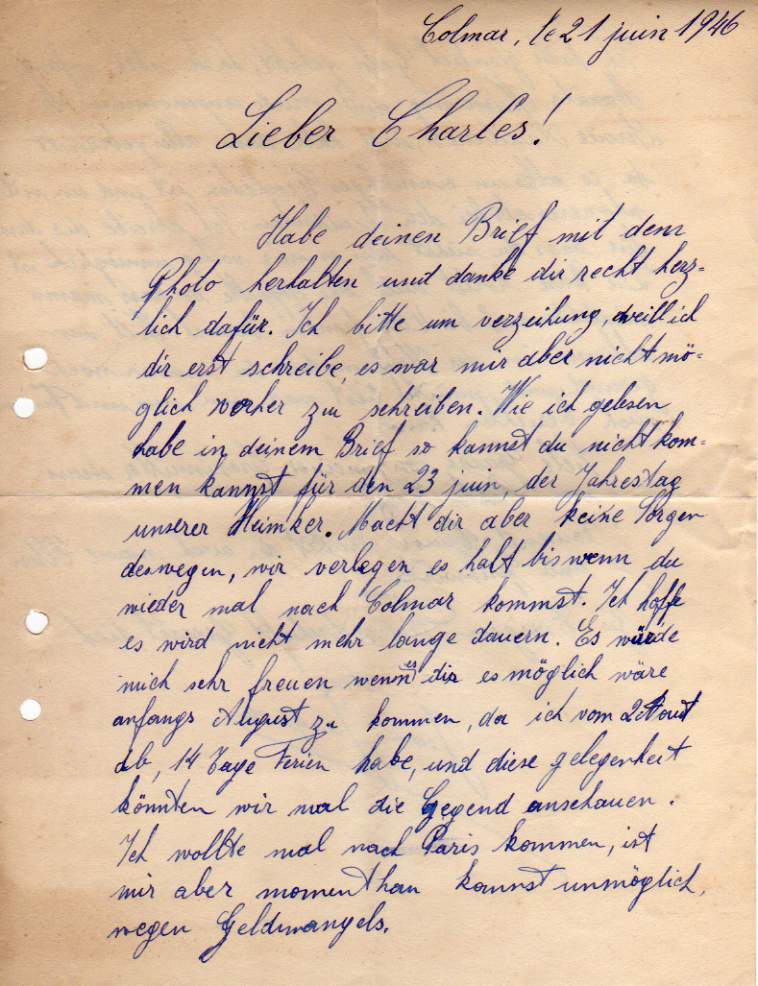 Colmar, le 21 juin 1946
Lieber Charles!
Habe deinen Brief mit dem
Photo herhalten und danke dir recht herz-
lich dafür. Ich bitte um verzeihung, weill ich
dir erst schreibe, es war mir aber nicht mö-
glich vorher zu schreiben. Wie ich gelesen
habe in deinem Brief so kannst du nicht kom-
men kannst für den 23 juin, der Jahrestag
unserer Heimker. Macht dir aber keine Sorgen
deswegen, wir verlegen es halt bis wenn du
wieder mal nach Colmar kommst. Ich hoffe
es wird nicht mehr lange dauern. Es würde
mich sehr freuen wenn es dir es möglich wäre
anfangs August zu kommen, da ich vom 2 Aout
ab, 14 Tage Ferien habe, und diese gelegenheit
könnten wir mal die Gegend anschauen.
Ich wollte mal nach Paris kommen, ist
mir aber momenthan kannst unmöglich,
wegen Geldmangels.